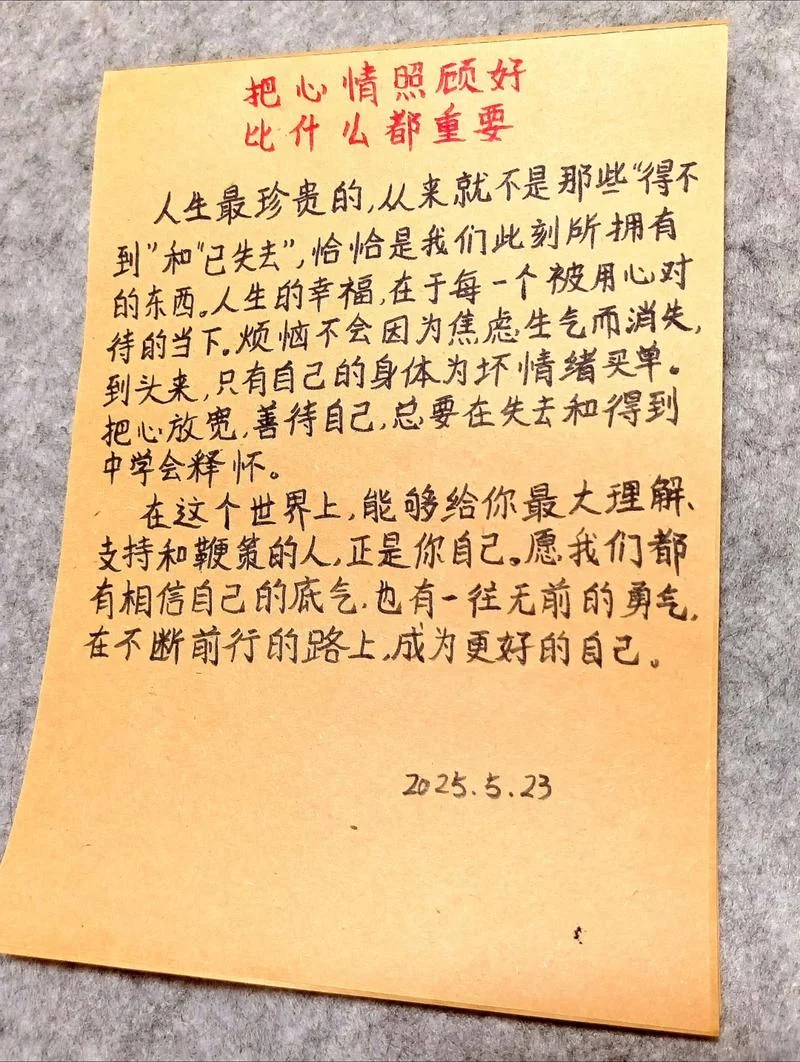 把心情照顾好
比什么都重要
人生最珍贵的,从来就不是那些“得不
到”和“已失去”,恰恰是我们此刻所拥有
的东西。人生的幸福,在于每一个被用心对
待的当下。烦恼不会因为焦虑生气而消失,
到头来,只有自己的身体为坏情绪买单。
把心放宽,善待自己,总要在失去和得到
中学会释怀。
在这个世界上,能够给你最大理解、
支持和鞭策的人,正是你自己。愿我们都
有相信自己的底气,也有一往无前的勇气,
在不断前行的路上,成为更好的自己。
2025.5.23